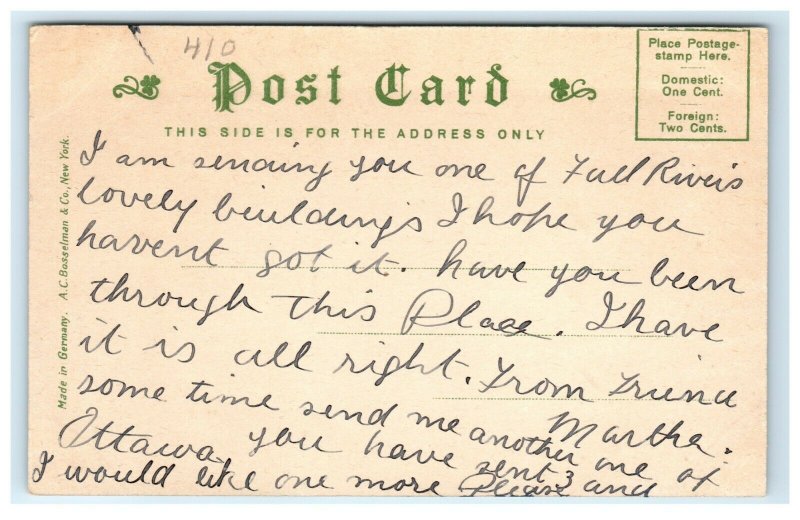 410
Post Card
THIS SIDE IS FOR THE ADDRESS ONLY
Place Postage-
stamp Here.
Domestic:
One Cent.
Foreign:
Two Cents.
Made in Germany. A.C. Bosselman & Co., New York.
I am sending you one of Fall River's
lovely buildings I hope you
havent got it. have you been
through this Place. I have
it is all right. From Friend
Martha.
some time send me another one of
Ottawa. you have sent 3
I would like one more Please and